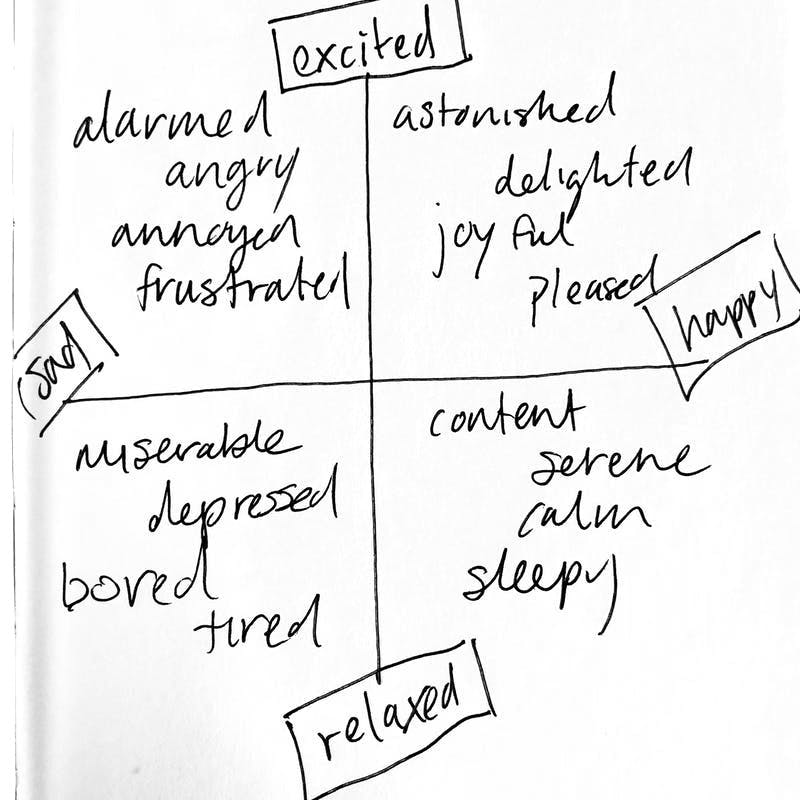 excited
alarmed
angry
annoyed
frustrated
astonished
delighted
joyful
pleased
sad
happy
miserable
depressed
bored
tired
content
serene
calm
sleepy
relaxed